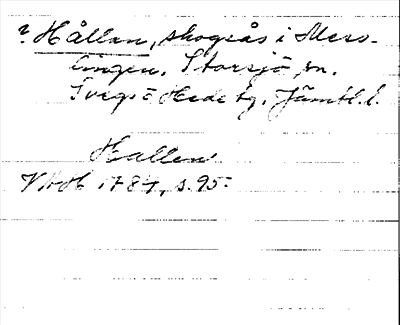 ? Hållan, skogsås i Mess-
lingen. Storsjö sn.
Svegs o Hede tg. Jämtl. l.
Hallen
VAH 1784, s. 95.